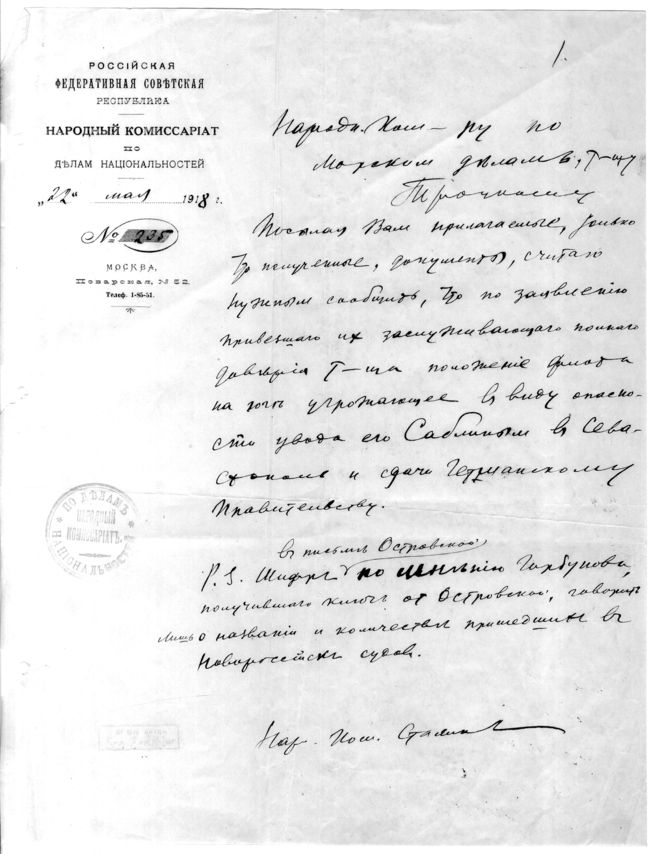 1.
РОССІЙСКАЯ
ФЕДЕРАТИВНАЯ СОВѢТСКАЯ
РЕСПУБЛИКА
НАРОДНЫЙ КОМИССАРІАТ
ПО
ДѢЛАМ НАЦІОНАЛЬНОСТЕЙ
„22“ мая 1918 г.
№ 235
МОСКВА,
Поварская, № 52.
Телеф. 1-85-51.
Народн. Ком-ру по
Морским дѣламъ, т-щу
Троцкому
Посылая Вам прилагаемые, только
что полученные, документы, считаю
нужным сообщить, что по заявленію
привезшаго их заслуживающаго полнаго
довѣрія т-ща положеніе флота
на югѣ угрожающее в виду опасно-
сти увода его Саблиным в Сева-
стополь и сдачи Гетманскому
Правительству.
в письмѣ Островской
P. S. Шифръ по мнѣнію Горбунова,
получившаго ключ от Островской, говорит
лишь о названіи и количествѣ пришедших в
Новороссійскъ судов.
Нар. Ком. Сталин
ПО ДѢЛАМЪ НАЦІОНАЛЬНОСТЕЙ
НАРОДНЫЙ
КОМИССАРІАТЪ